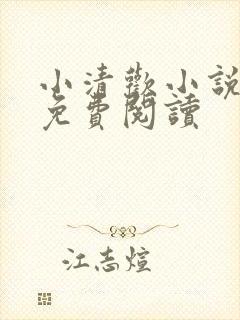 小清歡小說
免費閱讀
江志煊